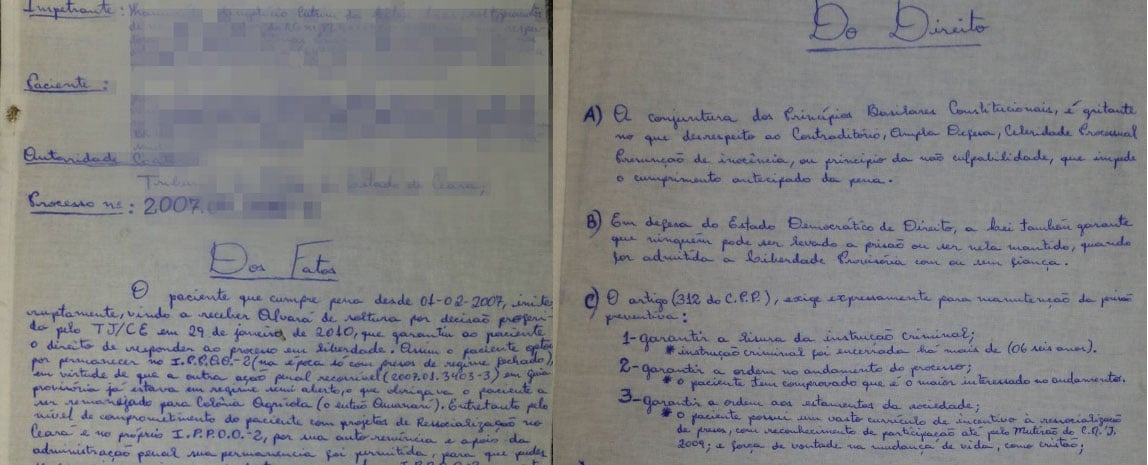 Impetrante:
Paciente:
Autoridade
Estado do Ceará,
Processo nº: 2007.
Dos Fatos
O paciente que cumpre pena desde 01-02-2007, ininte
ruptamente, vindo a receber Alvará de soltura por decisão proferi-
da pelo TJ/CE em 29 de janeiro de 2010, que garantiu ao paciente
o direito de responder ao processo em liberdade. Assim o paciente optou
por permanecer no I.P.P.O.O.-2 (na época só com presos de regime fechado),
em virtude de que a outra ação penal recorrível (2007.01.3403-3) em guia
provisória já estava em regime semi aberto, o que obrigava o paciente a
ser remanejado para Colônia Agrícola (o então Amanari). Entretanto pelo
nível de comprometimento do paciente com projetos de Ressocialização no
Ceará e no próprio I.P.P.O.O.-2, por sua auto renúncia e apoio da
administração penal sua permanência foi permitida, para que
Do Direito
A) A conjuntura dos Princípios Basilares Constitucionais, é gritante
no que desrespeito ao Contraditório, Ampla Defesa, Celeridade Processual
Presunção de inocência, ou princípio da não culpabilidade, que impede
o cumprimento antecipado da pena.
B) Em defesa do Estado Democrático de Direito, a Lei também garante
que ninguém pode ser levado a prisão ou ser nela mantido, quando
for admitida a Liberdade Provisória com ou sem fiança.
C) O artigo (312 do C.P.P.), exige expressamente para manutenção da prisão
preventiva:
1-garantir a lisura da instrução criminal;
* instrução criminal foi encerrada há mais de (06 seis anos).
2-garantir a ordem no andamento do processo;
* o paciente tem comprovado que é o maior interessado no andamento.
3-garantir a ordem aos estamentos da sociedade;
* o paciente possui um vasto currículo de incentivo à ressocialização
de presos, com reconhecimento de participação até pelo Mutirão do C.N.J.
2009; e força de vontade na mudança de vida, como cristão;